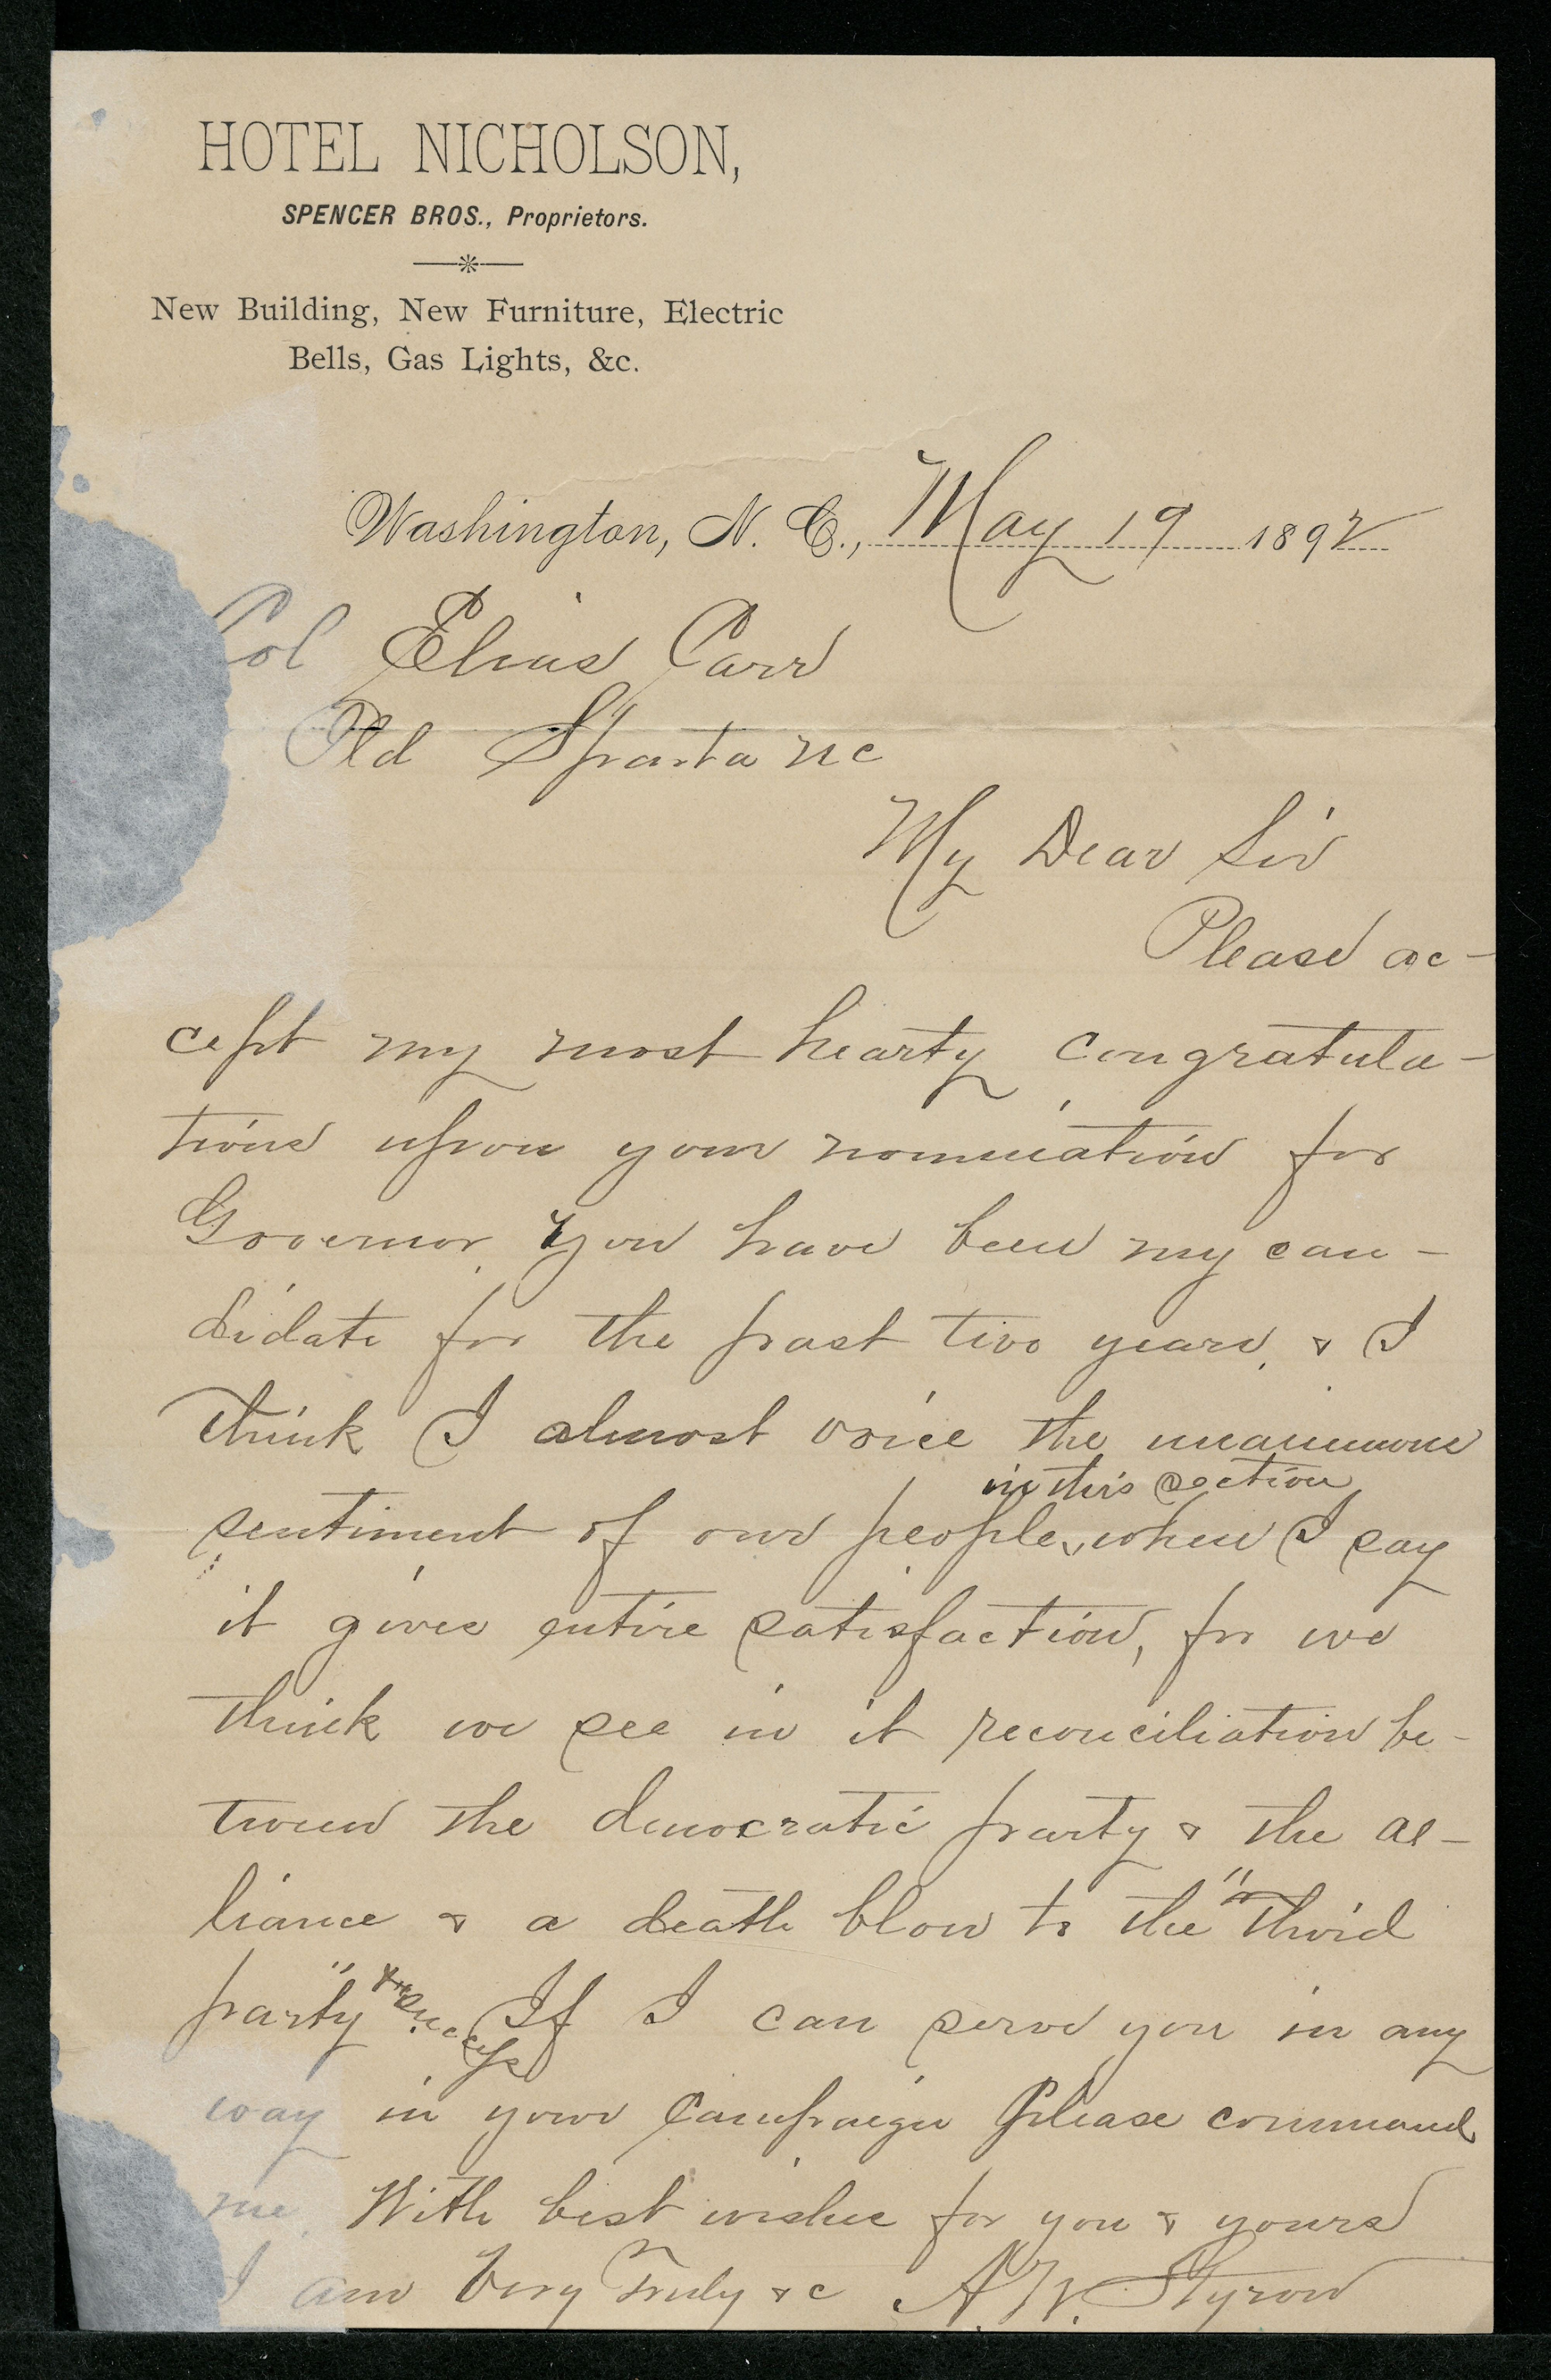 HOTEL NICHOLSON,
SPENCER BROS., Proprietors.
New Building, New Furniture, Electric
Bells, Gas Lights, &c.
Washington, N. C., May 19 1892
Col Elias Carr
Old Sparta NC
My Dear Sir
Please ac-
cept my most hearty congratula-
tions upon your nomination for
Governor. You have been my can-
didate for the past two years, & I
think I almost voice the unanimous
in this section
sentiment of our people, when I say
it gives entire satisfaction, for we
think we see in it reconciliation be-
tween the democratic party & the al-
liance & a death blow to the "Third
party" success If I can serve you in any
way in your campaign please command
me. With best wishes for you & yours
I am Very Truly &c A. W. Styron